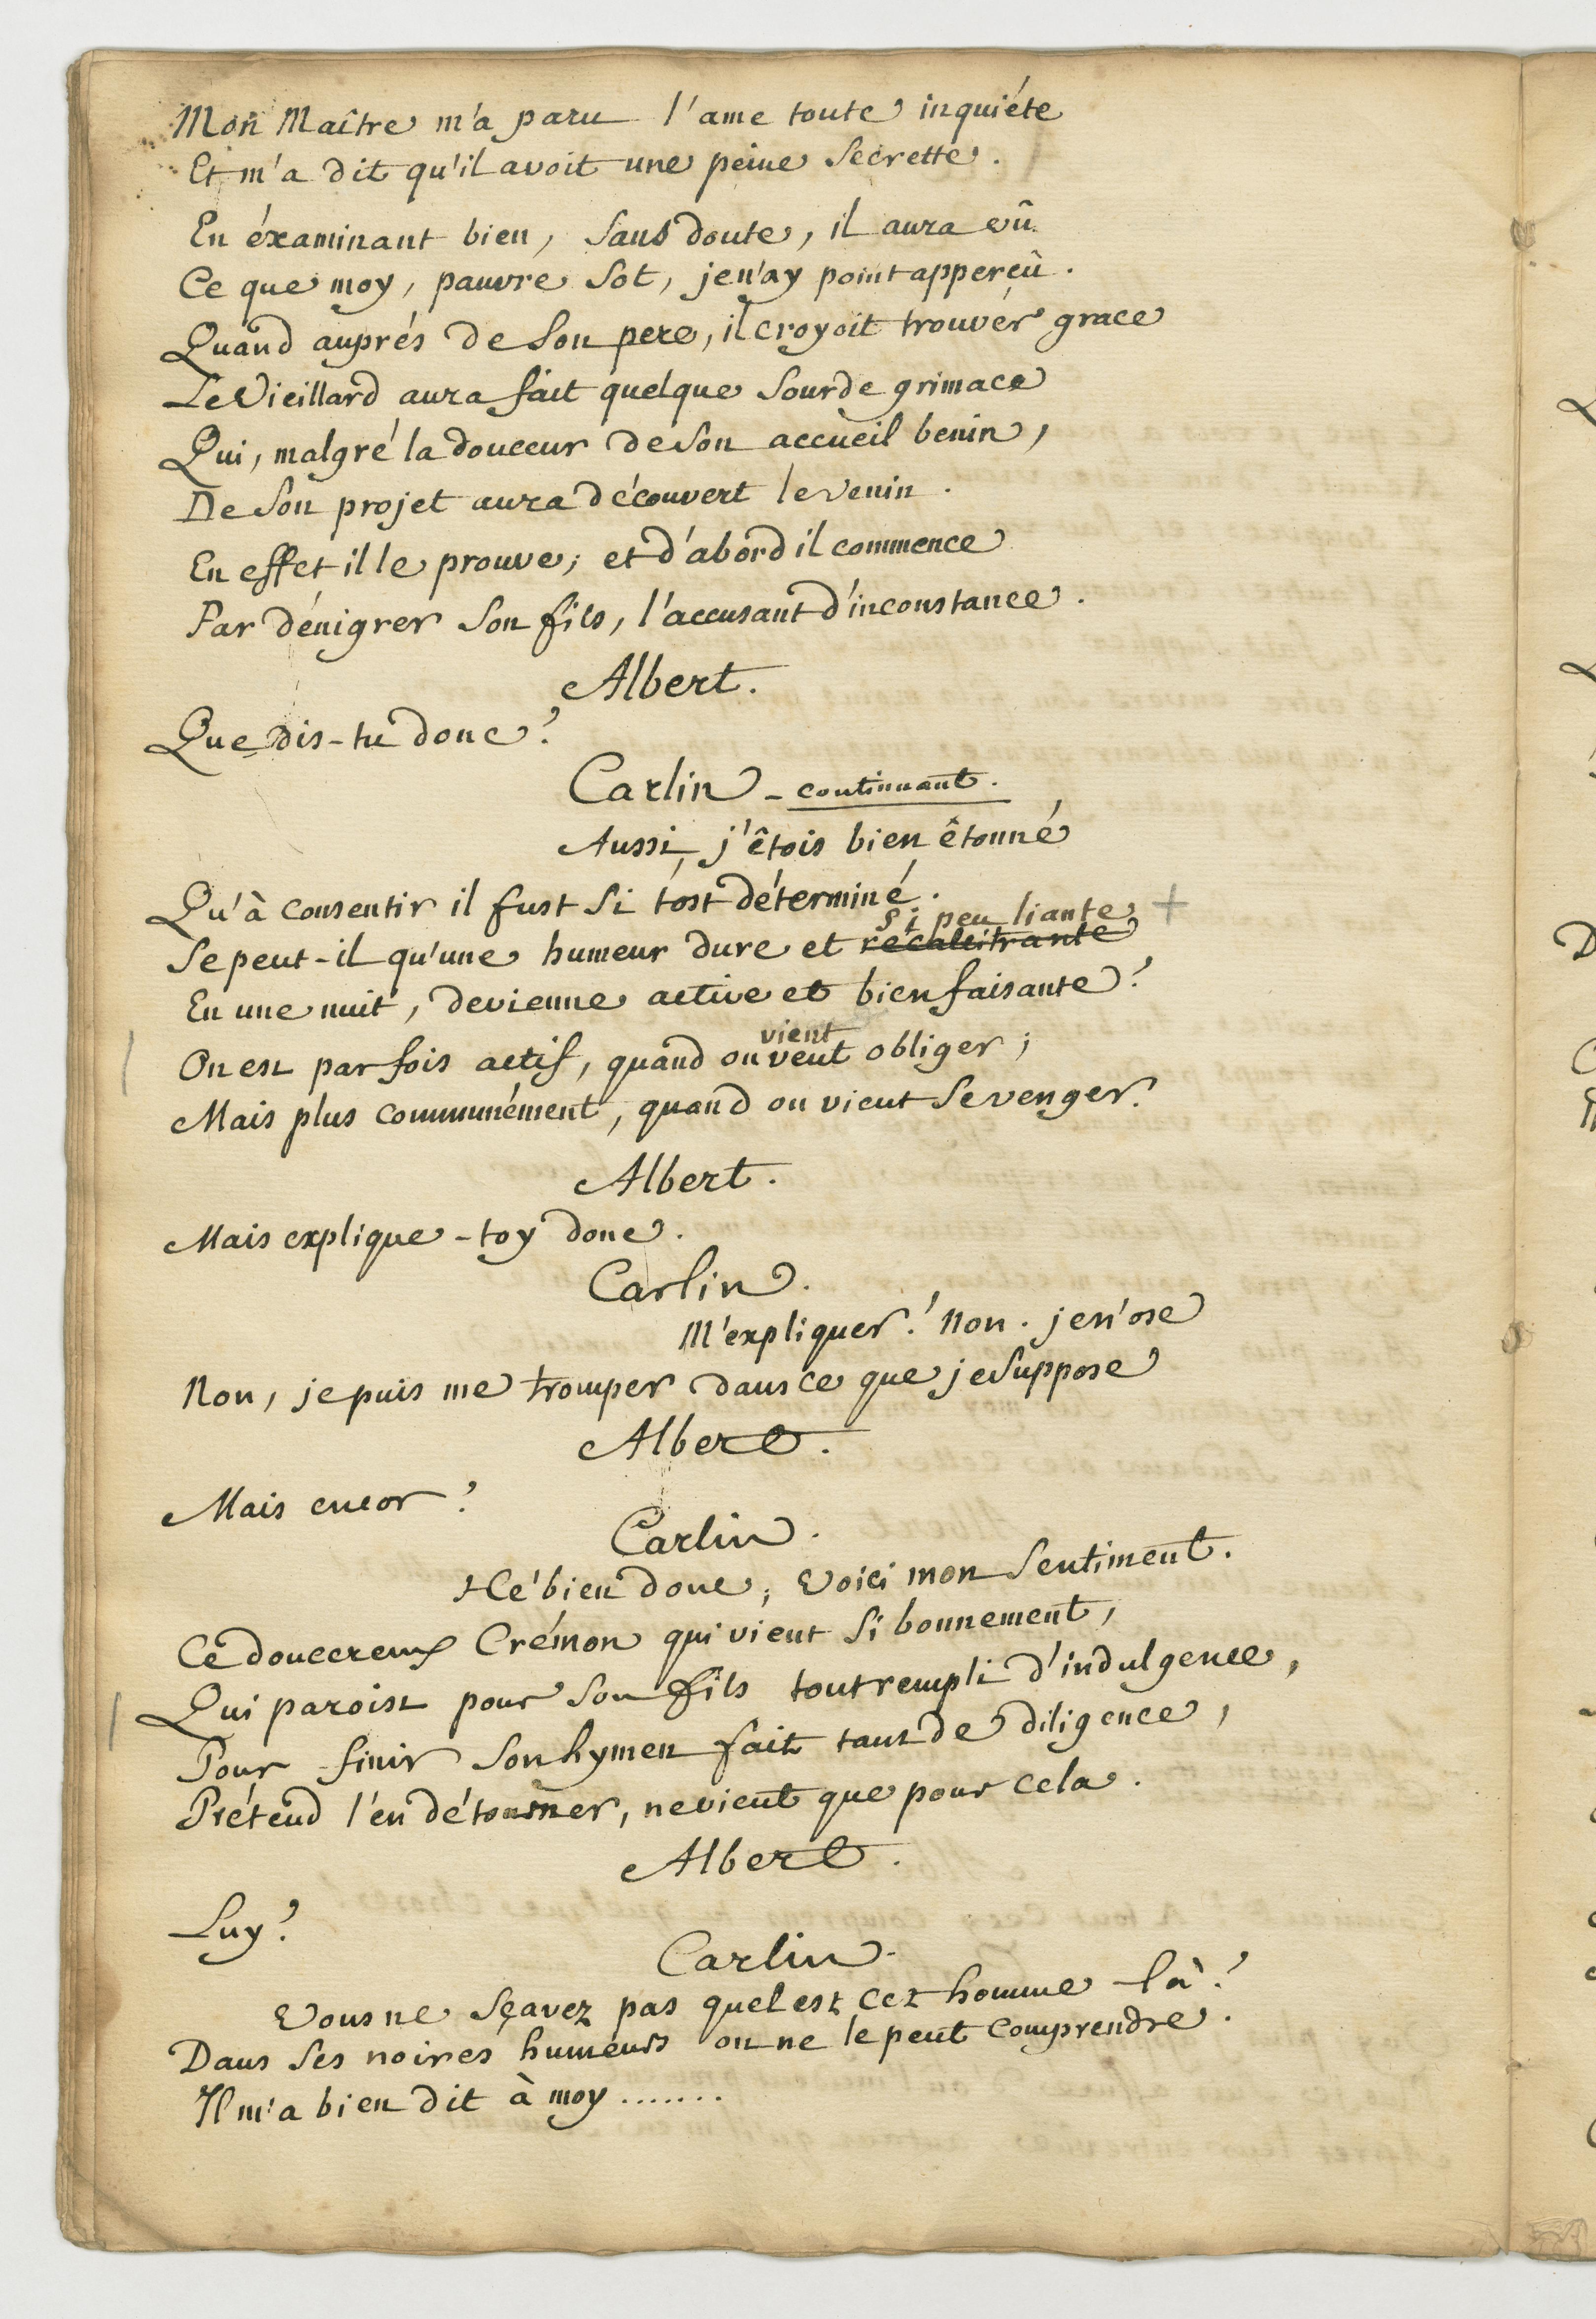 Mon Maître m'a paru l'ame toute inquiéte
Et m'a dit qu'il avoit une peine secrette.
En éxaminant bien, sans doute, il aura vû
Ce que moy, pauvre sot, je n'ay point apperçû.
Quand auprés de son pere, il croyoit trouver grace
Le Vieillard aura fait quelque sourde grimace
Qui, malgré la douceur de son accueil benin,
De son projet aura découvert le venin.
En effet il le prouve; et d'abord il commence
Par dénigrer son fils, l'accusant d'inconstance.
Albert.
Que dis-tu donc?
Carlin - continuant.
Aussi, j'êtois bien êtonné
Qu'à consentir il fust si tost déterminé.
si peu liante +
Se peut-il qu'une humeur dure et recalcitrante
En une nuit, devienne active et bienfaisante?
vient
On est parfois actif, quand on veut obliger;
Mais plus communément, quand on vient se venger.
Albert.
Mais explique-toy donc.
Carlin.
M'expliquer! Non. je n'ose
Non, je puis me tromper dans ce que je suppose
Albert.
Mais encor?
Carlin.
Hé bien donc, voici mon sentiment.
Ce doucereux Crémon qui vient si bonnement,
Qui paroist pour son fils tout rempli d'indulgence,
Pour finir son hymen fait tant de diligence,
Prétend l'en détourner, ne vient que pour cela.
Albert.
Luy?
Carlin.
Vous ne sçavez pas quel est cet homme-là!
Dans ses noires humeurs on ne le peut comprendre.
Il m'a bien dit à moy .......